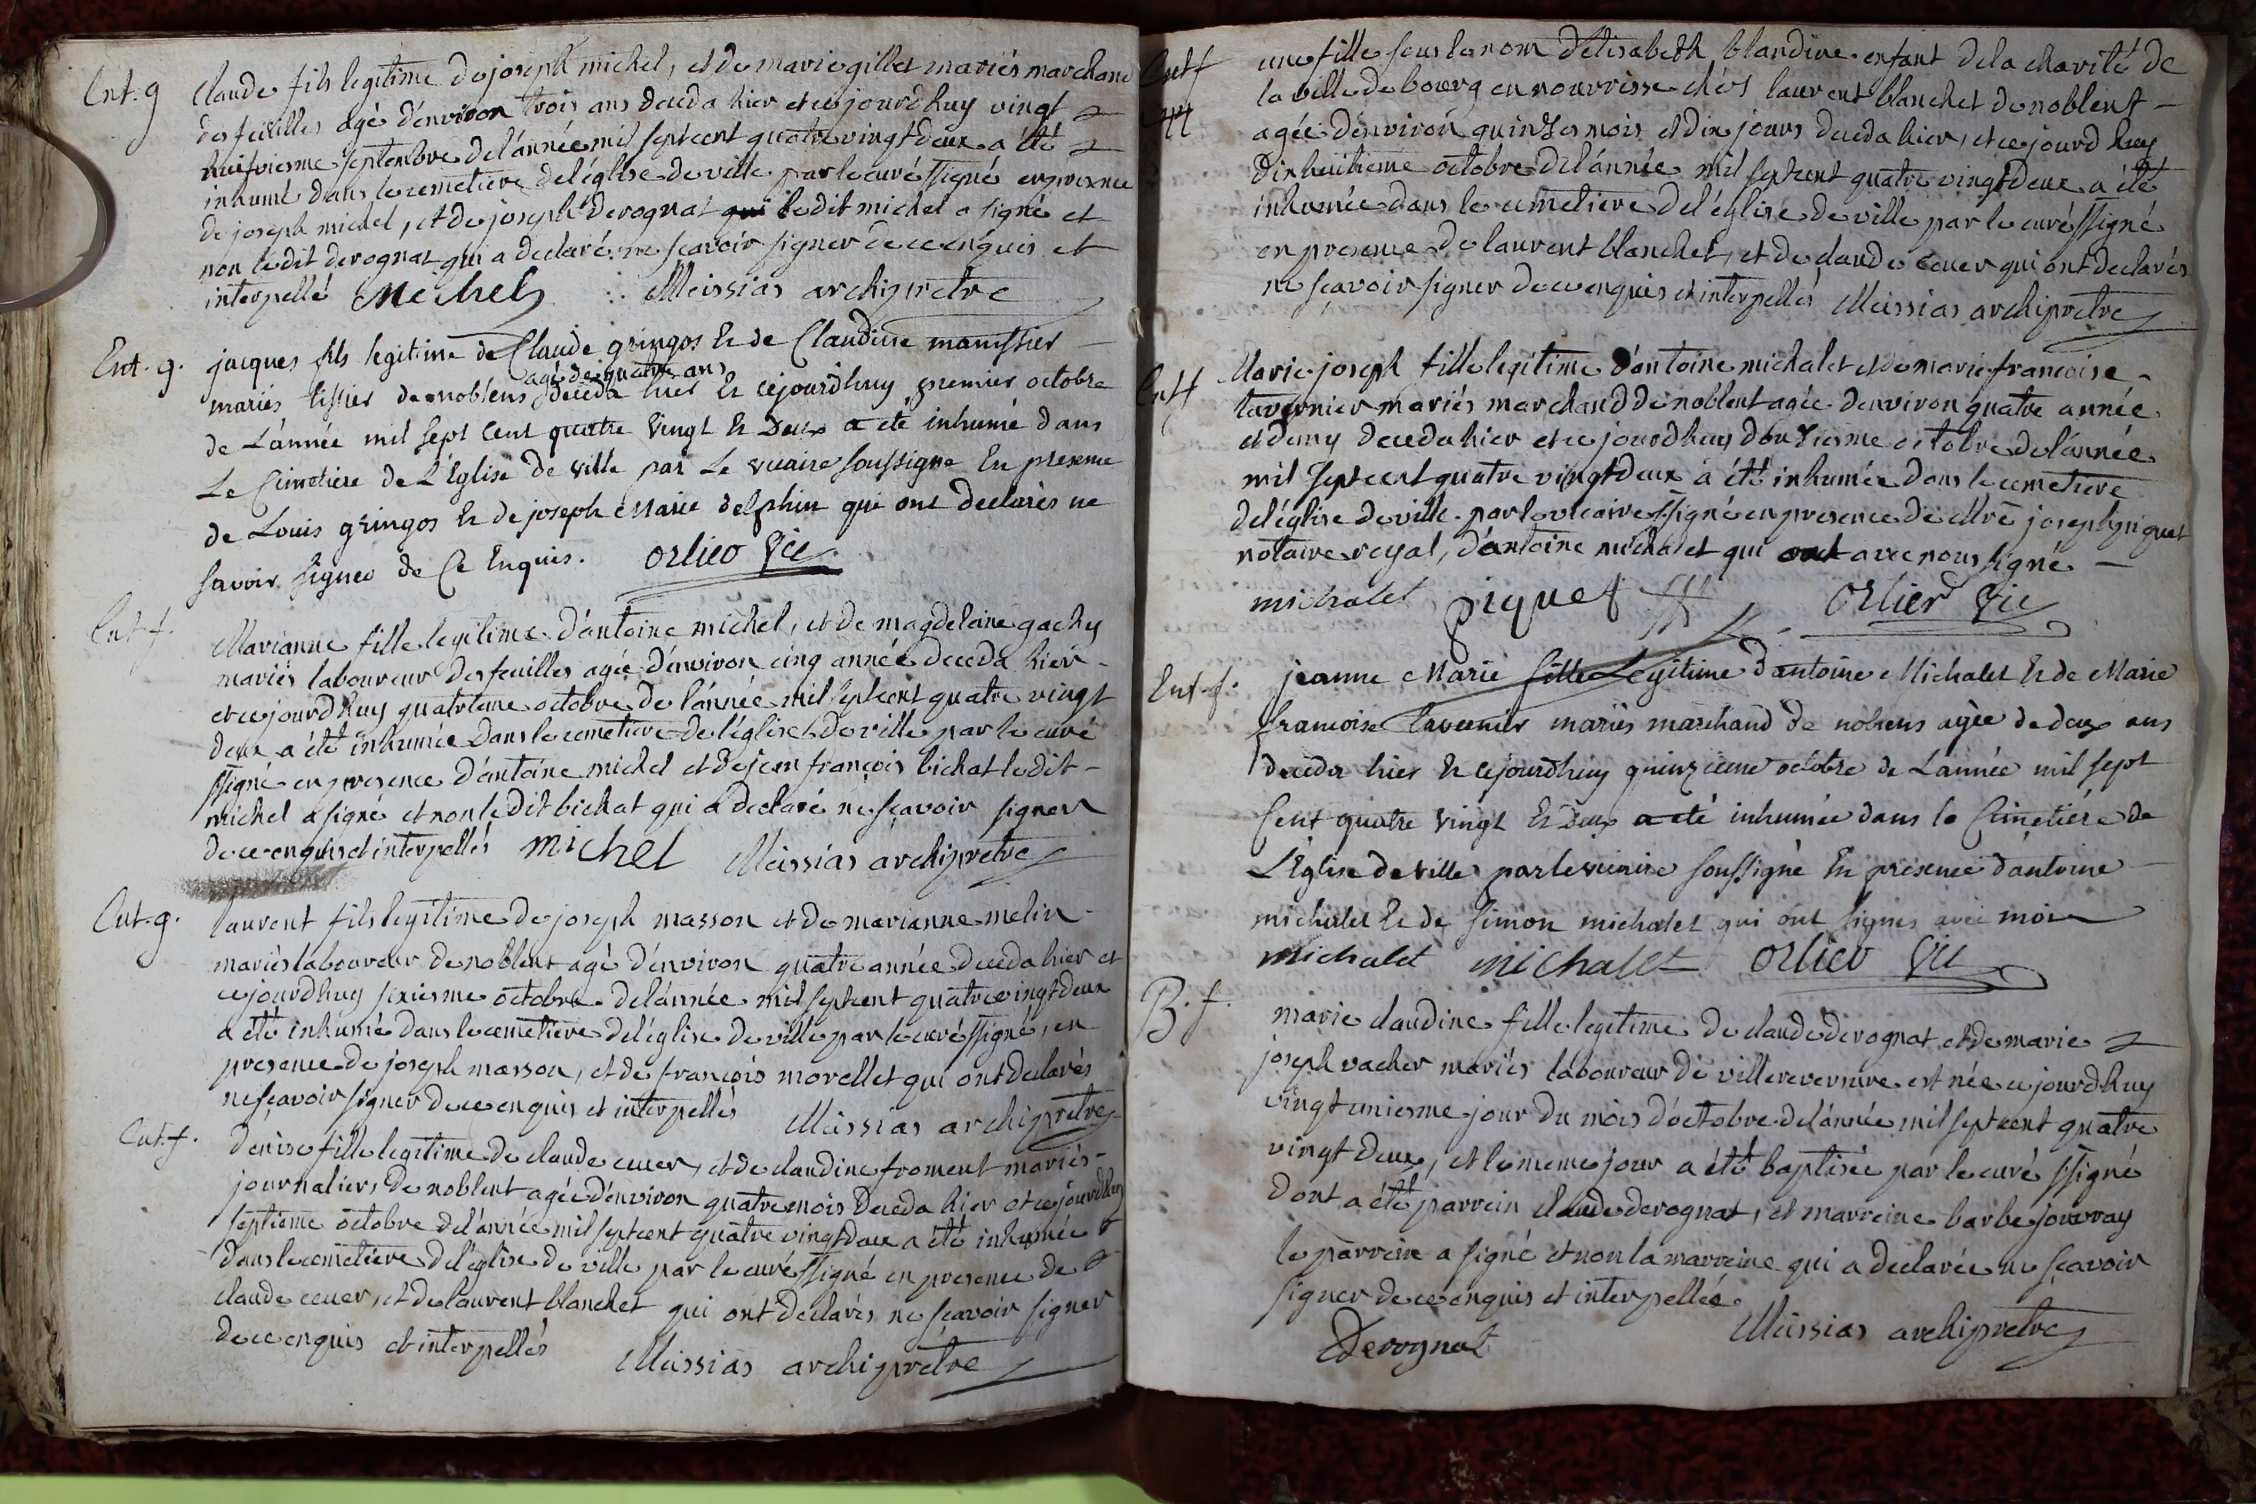 Ent. g
Claude fils legitime de joseph michel, et de marie gillet mariés marchand
des feuilles agé d'environ trois ans deceda hier et cejourd huy vingt
huitiesme septembre de l'année mil sept cent quatre vingt deux a été
inhumé dans le cemetiere de l'église de ville par le curé ssigné en presence
de joseph michel, et de joseph derognat ledit michel a signé et
non le dit derognat qui a declaré ne scavoir signer de ce enquis et
interpellé Michel Meissias archiprêtre
Ent. g.
jacques fils legitime de Claude gringos & de Claudine manissier
agé de quatre ans
mariés tissier de noblens deceda hier & cejourdhuy premier octobre
de L'année mil sept Cent quatre vingt & Deux a eté inhumé dans
Le Cimetiere de L'Eglise de ville par Le vicaire soussigné En presence
de Louis gringos & de joseph Marie delphin qui ont declarés ne
savoir signer de Ce Enquis. orlier vic
Ent. f.
Marianne fille legitime d'antoine michel, et de magdelaine gachy
mariés laboureur des feuilles agée d'environ cinq année deceda hier
et cejourd huy quatrieme octobre de l'année mil sept cent quatre vingt
deux a été inhumée dans le cemetiere de l'église de ville par le curé
ssigné en presence d'antoine michel et de jean françois bichat le dit
michel a signé et non le dit bichat qui a declaré ne scavoir signer
de ce enquis et interpellés michel Meissias archiprêtre
Ent. g.
laurent fils legitime de joseph masson et de marianne melin
mariés laboureur de noblent agé d'environ quatre année deceda hier et
cejourd huy sixiesme octobre de l'année mil sept cent quatre vingt deux
a été inhumé dans le cemetiere de l'église de ville par le curé ssigné, en
presence de joseph masson, et de françois morellet qui ont declarés
ne scavoir signer de ce enquis et interpellés Meissias archiprêtre
Ent. f.
denise fille legitime de claude cuer, et de claudine froment mariés
journaliers de noblent agée d'environ quatre mois deceda hier et cejourdhuy
septieme octobre de l'année mil sept cent quatre vingt deux a été inhumée
dans le cemetiere de l'église de ville par le curé ssigné en presence de
claude cuer, et de laurent blanchet qui ont declarés ne scavoir signer
de ce enquis et interpellés Meissias archiprêtre
Ent f
une fille sous le nom d'elisabeth blandine enfant de la charité de
la ville de bourg en nourrisse chés laurent blanchet de noblent
agée d'environ quinzes mois et dix jours deceda hier, et cejourd huy
dixhuitieme octobre de l'année mil sept cent quatre vingt deux a été
inhumée dans le cemetiere de l'église de ville par le curé ssigné
en presence de laurent blanchet, et de claude cuer qui ont declarés
ne scavoir signer de ce enquis et interpellés Meissias archiprêtre
Ent f
Marie joseph fille legitime d'antoine michalet et de marie francoise
tavernier mariés marchand de noblent agée d'environ quatre année
et demy deceda hier et cejourdhuy douziesme octobre de l'année
mil sept cent quatre vingt deux a été inhumée dans le cemetiere
de l'église de ville par le vicaire ssigné en presence de Mre joseph piquet
notaire royal, d'antoine michalet qui ont avec nous signé
michalet piquet Orlier vic
Ent. f.
jeanne Marie fille Legitime d'antoine Michalet & de Marie
francoise tavernier mariés marchand de noblens agée de deux ans
deceda hier & cejourdhuy quinzieme octobre de L'année mil sept
Cent quatre vingt & Deux a eté inhumée dans le Cimetière de
L'Eglise de ville par le vicaire soussigné En présence d'antoine
michalet & de simon michalet qui ont signés avec moi
michalet michalet orlier vic
B. f.
marie claudine fille legitime de claude derognat et de marie
joseph vacher mariés laboureur de villereversure est née cejourdhuy
vingt uniesme jour du mois d'octobre de l'année mil sept cent quatre
vingt deux, et le meme jour a été baptisée par le curé ssigné
dont a été parrein claude derognat, et marreine barbe jouvray
le parrein a signé et non la marreine qui a declarée ne scavoir
signer de ce enquis et interpellée.
Derognat Meissias archiprêtre